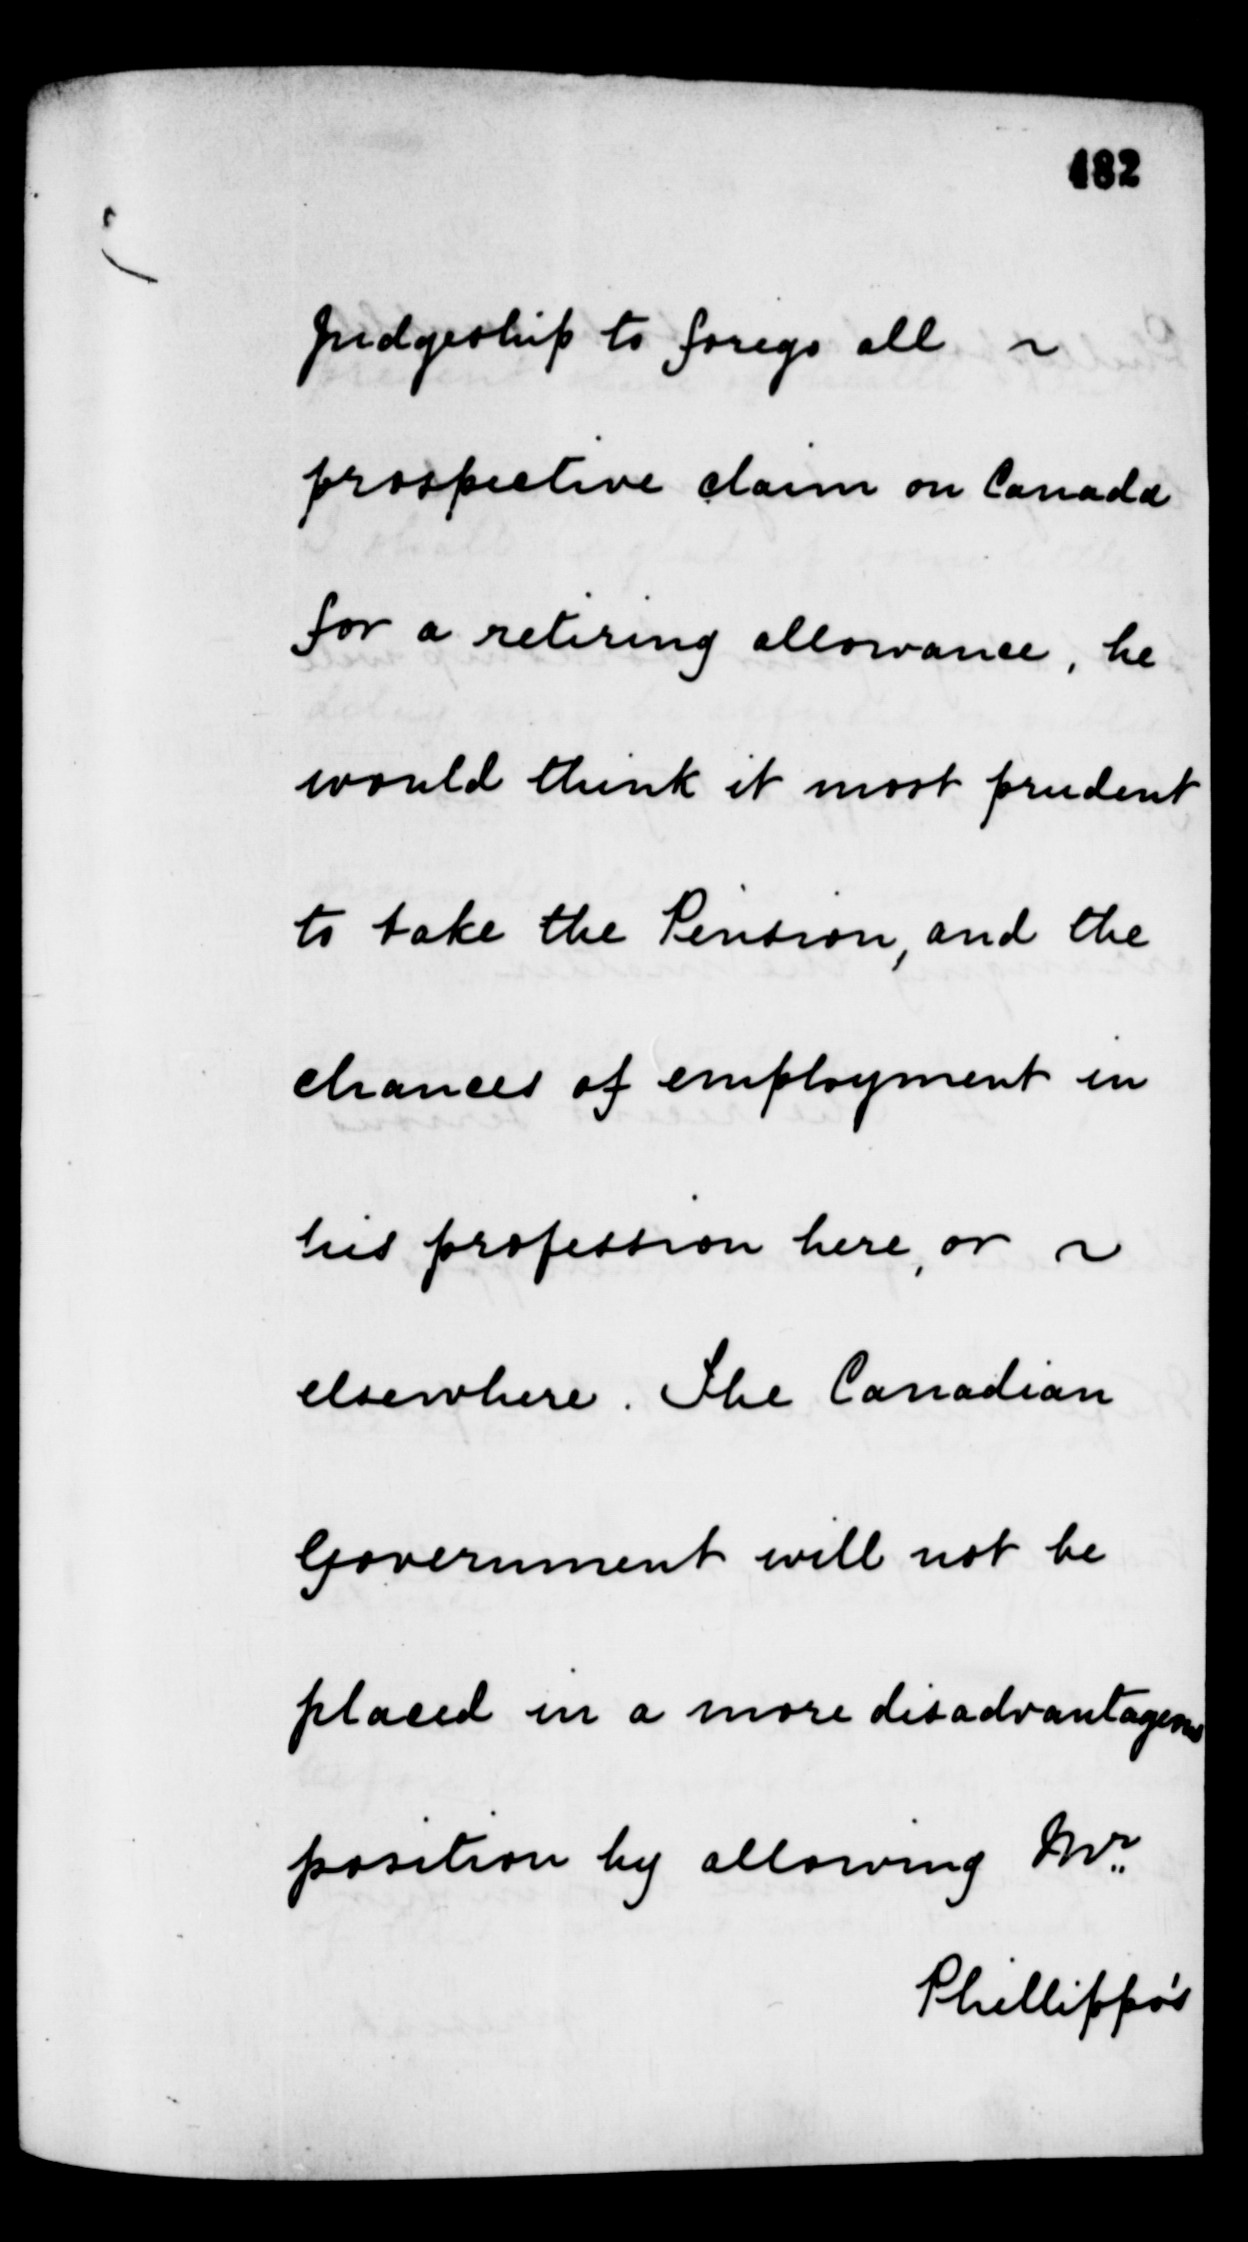 182
Judgeship to forego all ~
prospective claim on Canada
for a retiring allowance, he
would think it most prudent
to take the Pension, and the
chances of employment in
his profession here, or ~
elsewhere. The Canadian
Government will not be
placed in a more disadvantageous
position by allowing Mr.
Phillippo's